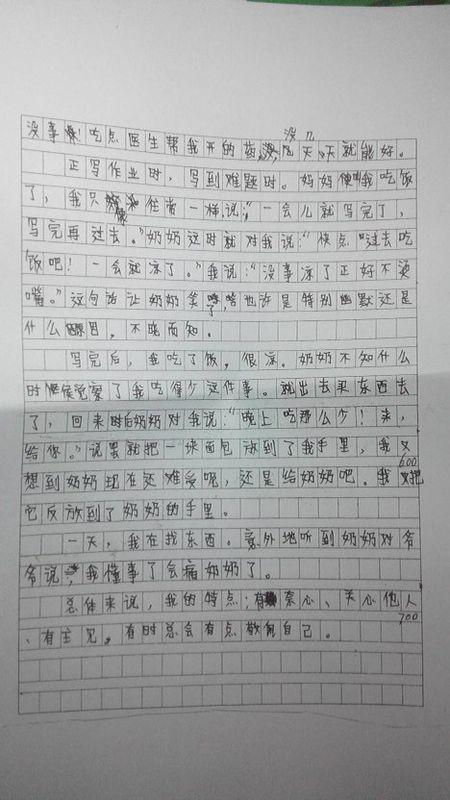 没事!吃点医生帮我开的药,没几天就能好。
正写作业时,写到难题时。妈妈便叫我吃饭
了,我只像往常一样说:“一会儿就写完了,
写完再过去。”奶奶这时就对我说:“快点过去吃
饭吧!一会就凉了。”我说:“没事凉了正好不烫
嘴。”这句话让奶奶笑了,也许是特别幽默还是
什么原因,不晓而知。
写完后,我吃了饭,很凉。奶奶不知什么
时候觉察了我吃得少这件事。就出去买东西去
了,回来时后奶奶对我说:“晚上吃那么少!来,
给你。”说罢就把一块面包放到了我手里,我又
想到奶奶现在还难受呢,还是给奶奶吧。我又把
600
它反放到了奶奶的手里。
一天,我在找东西。意外地听到奶奶对爷
爷说,我懂事了会痛奶奶了。
总体来说,我的特点:有奈心、关心他人
700
、有主见。有时总会有点敷衍自己。